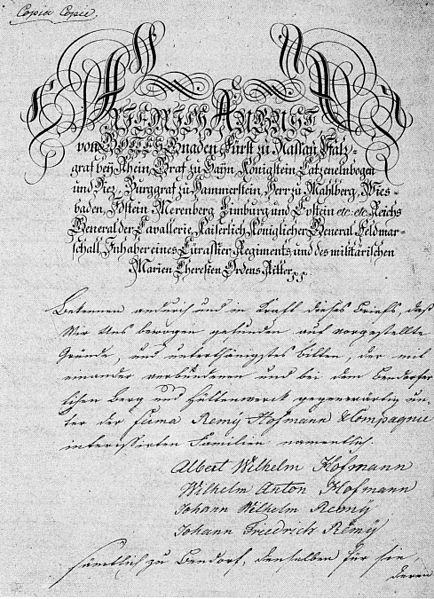 Copia Copie.
FRIEDRICH AUGUST
von GOTTES Gnaden, Fürst zu Nassau, Pfalz-
graf bey Rhein, Graf zu Sayn, Königstein, Catzenelnbogen
und Diez, Burggraf zu Hammerstein, Herr zu Mahlberg, Wies-
baden, Idstein, Merenberg, Limburg und Epstein etc: etc: Reichs
General der Cavallerie, Kaiserlich Königlicher General Feldmar-
schall, Inhaber eines Curassier Regiments und des militärischen
Marien Theresien Ordens Ritter
Bekennen andurch und in Kraft dieses Briefs, daß
Wir Uns bewogen gefunden auf vorgestellte
Gründe, und unterthänigstes bitten, der mit
einander verbundenen und bei dem Bendorfer
lichen Berg und Hüttenwerck gegenwärtig un-
ter der firma Remÿ Hofmann & Compagnie
interessirten Familien namentlich.
Albert Wilhelm Hofmann
Wilhelm Anton Hofmann
Johann Wilhelm Remÿ
Johann Friedrich Remÿ
sämtlich zu Bendorf, denselben für sie,
deren